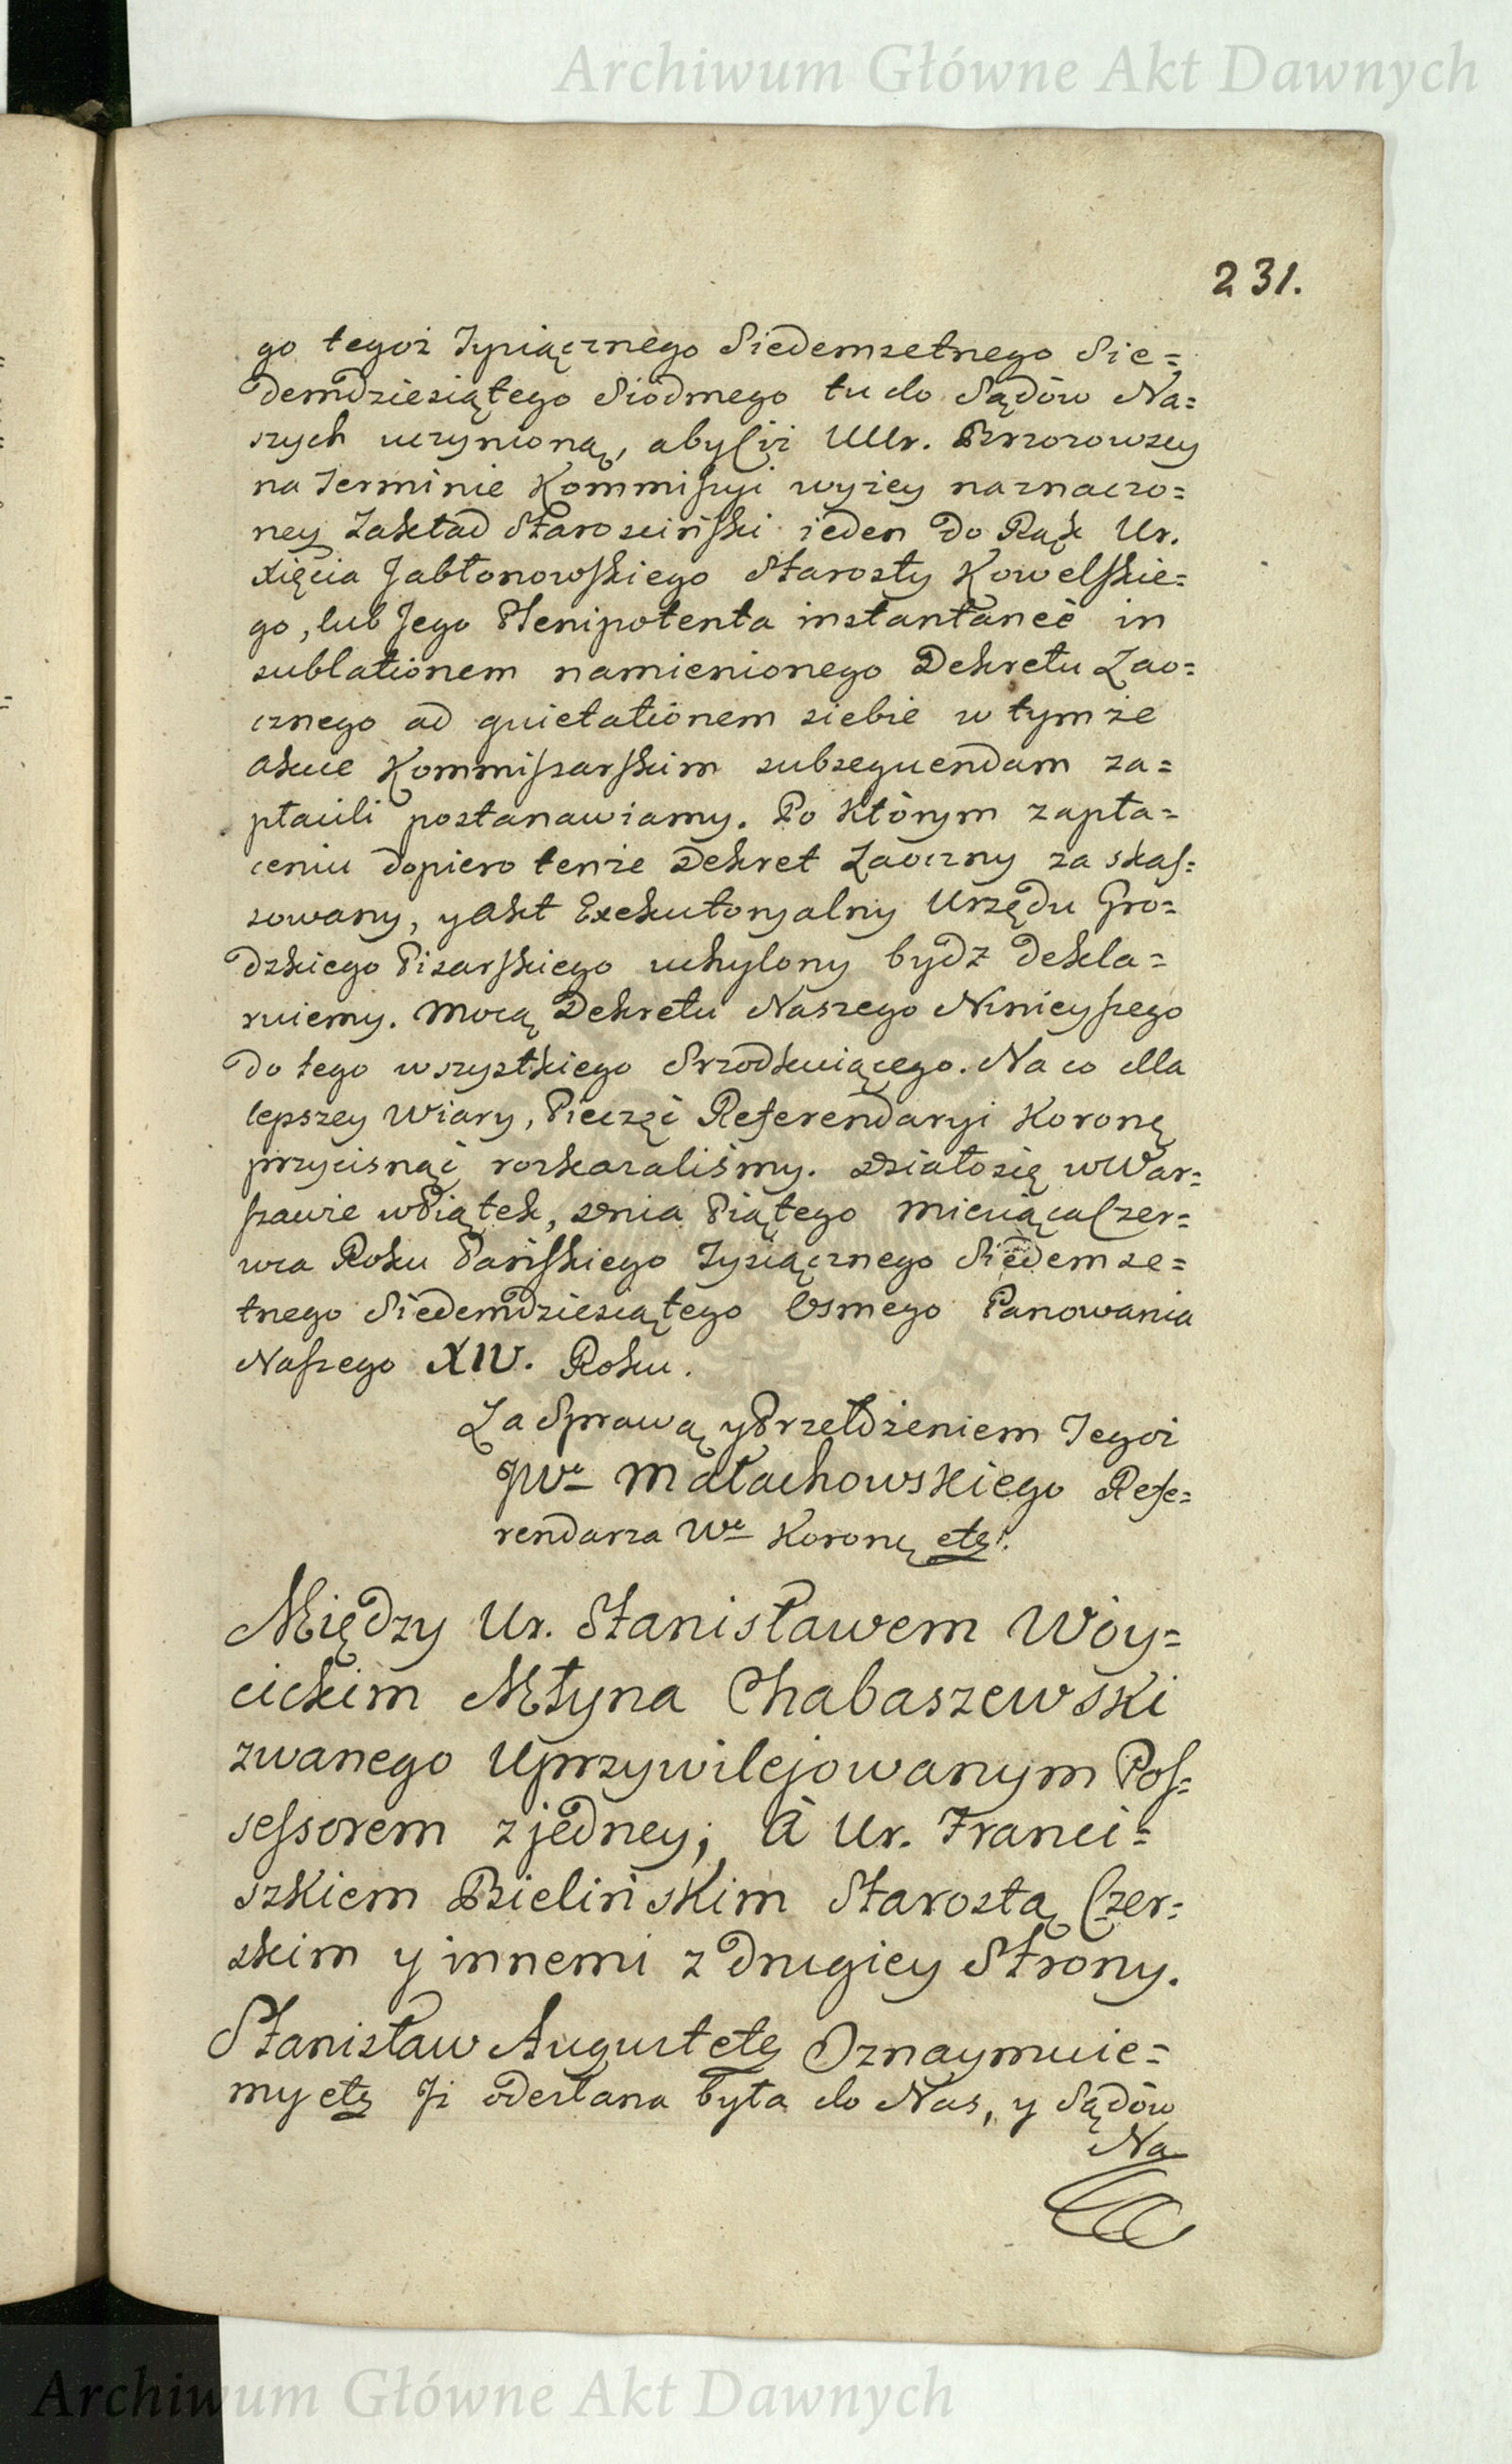 Archiwum Główne Akt Dawnych
231.
go tegoż Tysiącznego Siedemsetnego Sie=
demdziesiątego Siodmego tu do Sądów Na=
szych uczynioną, aby Ciż UUr. Brzozowscy
na Terminie Kommissyi wyżey naznaczo=
ney Zakład Starosciński ieden do Rąk Ur.
Xięcia Jabłonowskiego Starosty Kowelskie=
go, lub Jego Plenipotenta instantaneè in
sublationem namienionego Dekretu Zao=
cznego ad quietationem siebie w tymże
akcie Kommissarskim subsequendam za=
płacili postanawiamy. Po którym zapła=
ceniu dopiero tenże Dekret Zaoczny za skas=
sowany, y akt Exekutoryalny Urzędu Gro=
dzkiego Pisarskiego uchylony bydz dekla=
ruiemy. Mocą Dekretu Naszego Ninieyszego
do tego wszystkiego Srzodkuiącego. Na co dla
lepszey Wiary, Pieczęć Referendaryi Koronę
przycisnąć rozkazaliśmy. Działo się w War=
szawie w Piątek, Dnia Piątego Miesiąca Czer=
wca Roku Pańskiego Tysiącznego Siedemse=
tnego Siedemdziesiątego Osmego Panowania
Naszego XIV. Roku.
Za Sprawą y Przełożeniem Tegoż
JWo Małachowskiego Refe=
rendarza Wo Koronę etc.
Między Ur. Stanisławem Woy=
cickim Młyna Chabaszewski
zwanego Uprzywilejowanym Pos=
sessorem z jedney; A Ur. Franci=
szkiem Bielińskim Starostą Czer=
skim y innemi z drugiey Strony.
Stanisław August etc Oznaymuie=
my etc Jż odesłana była do Nas, y Sądów
Na
Archiwum Główne Akt Dawnych